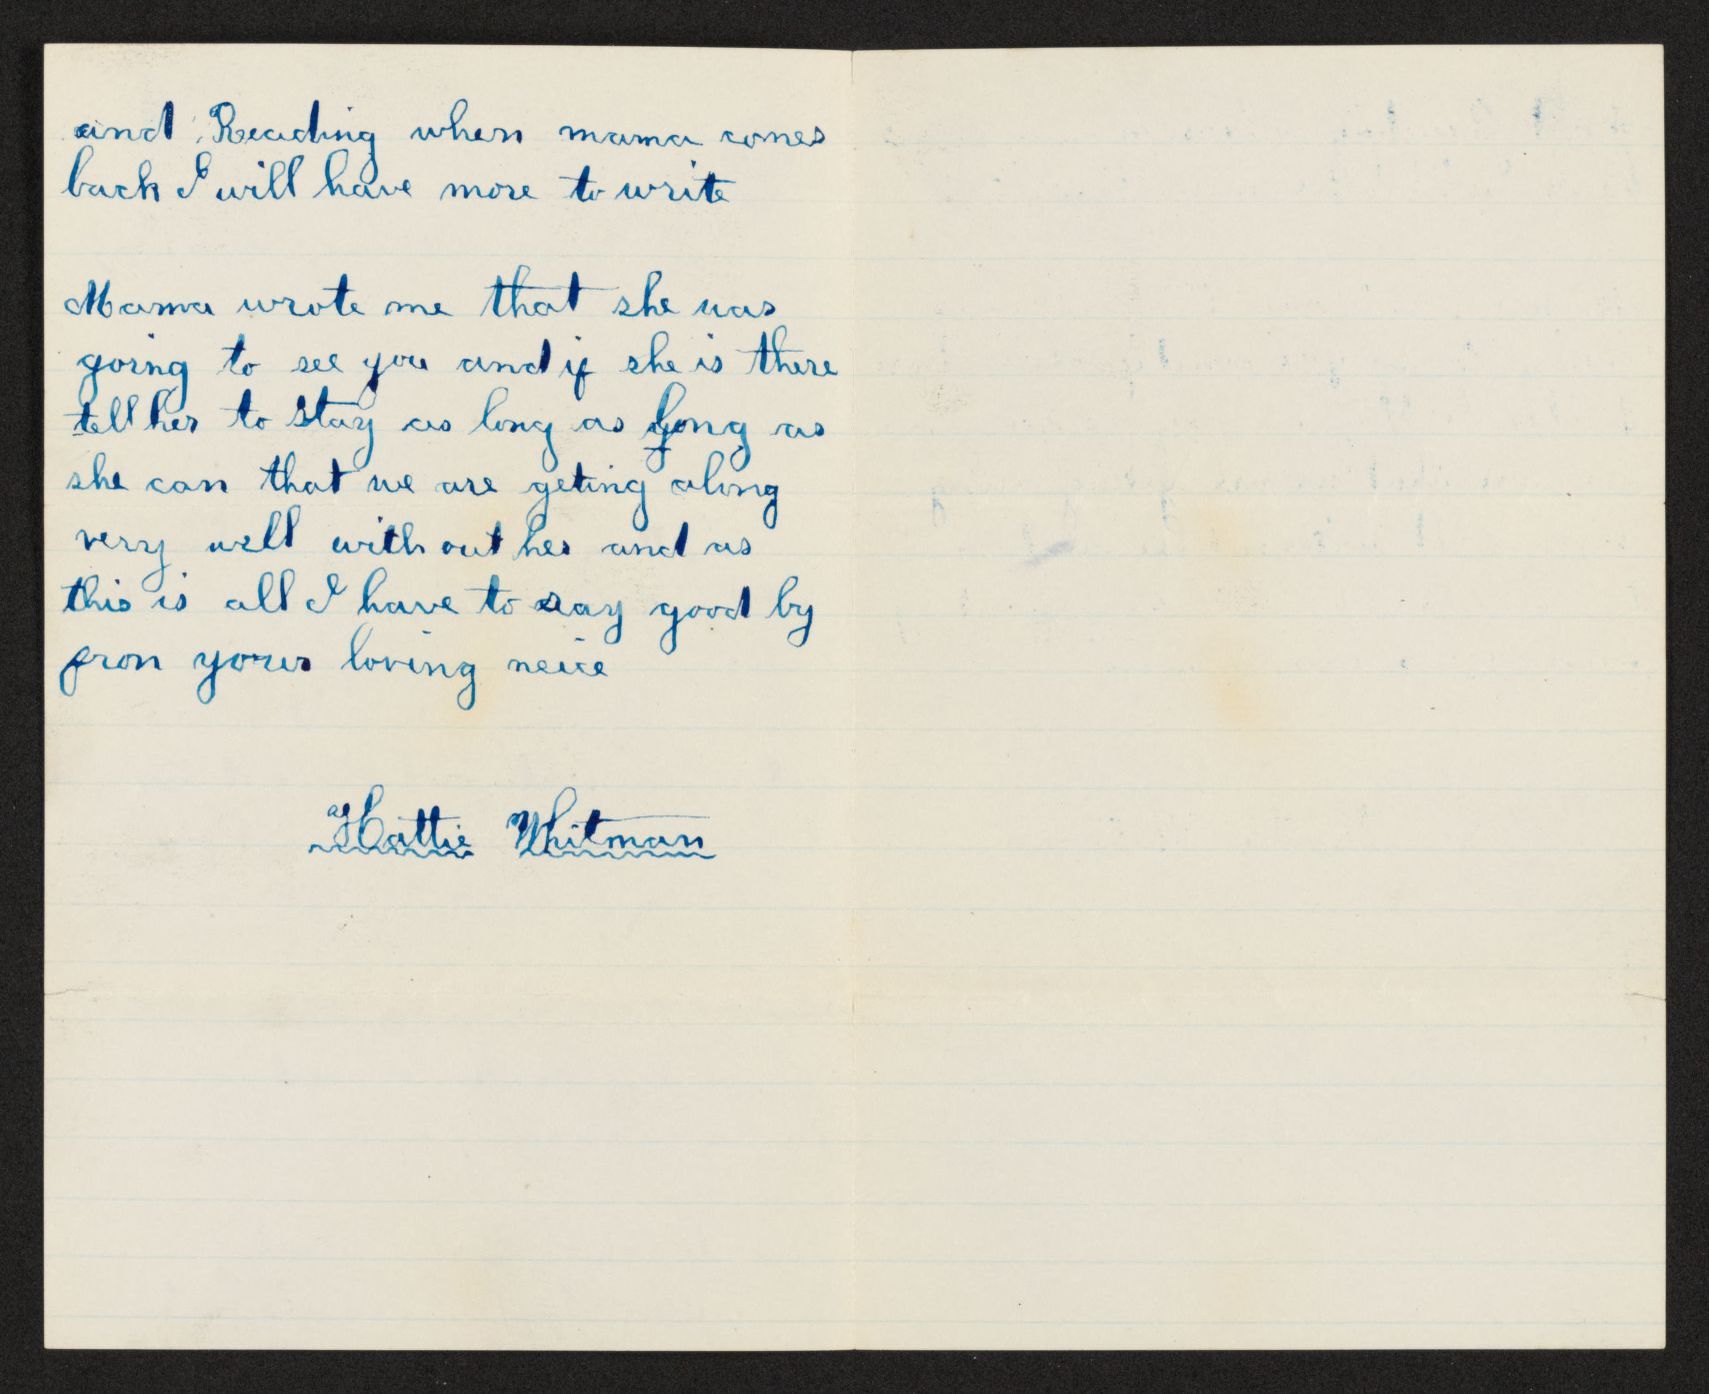 and Reading when mama comes
back I will have more to write
Mama wrote me that she was
going to see you and if she is there
tell her to stay as long as long as
she can that we are geting along
very well with out her and as
this is all I have to say good by
fron your loving neice
Hattie Whitman